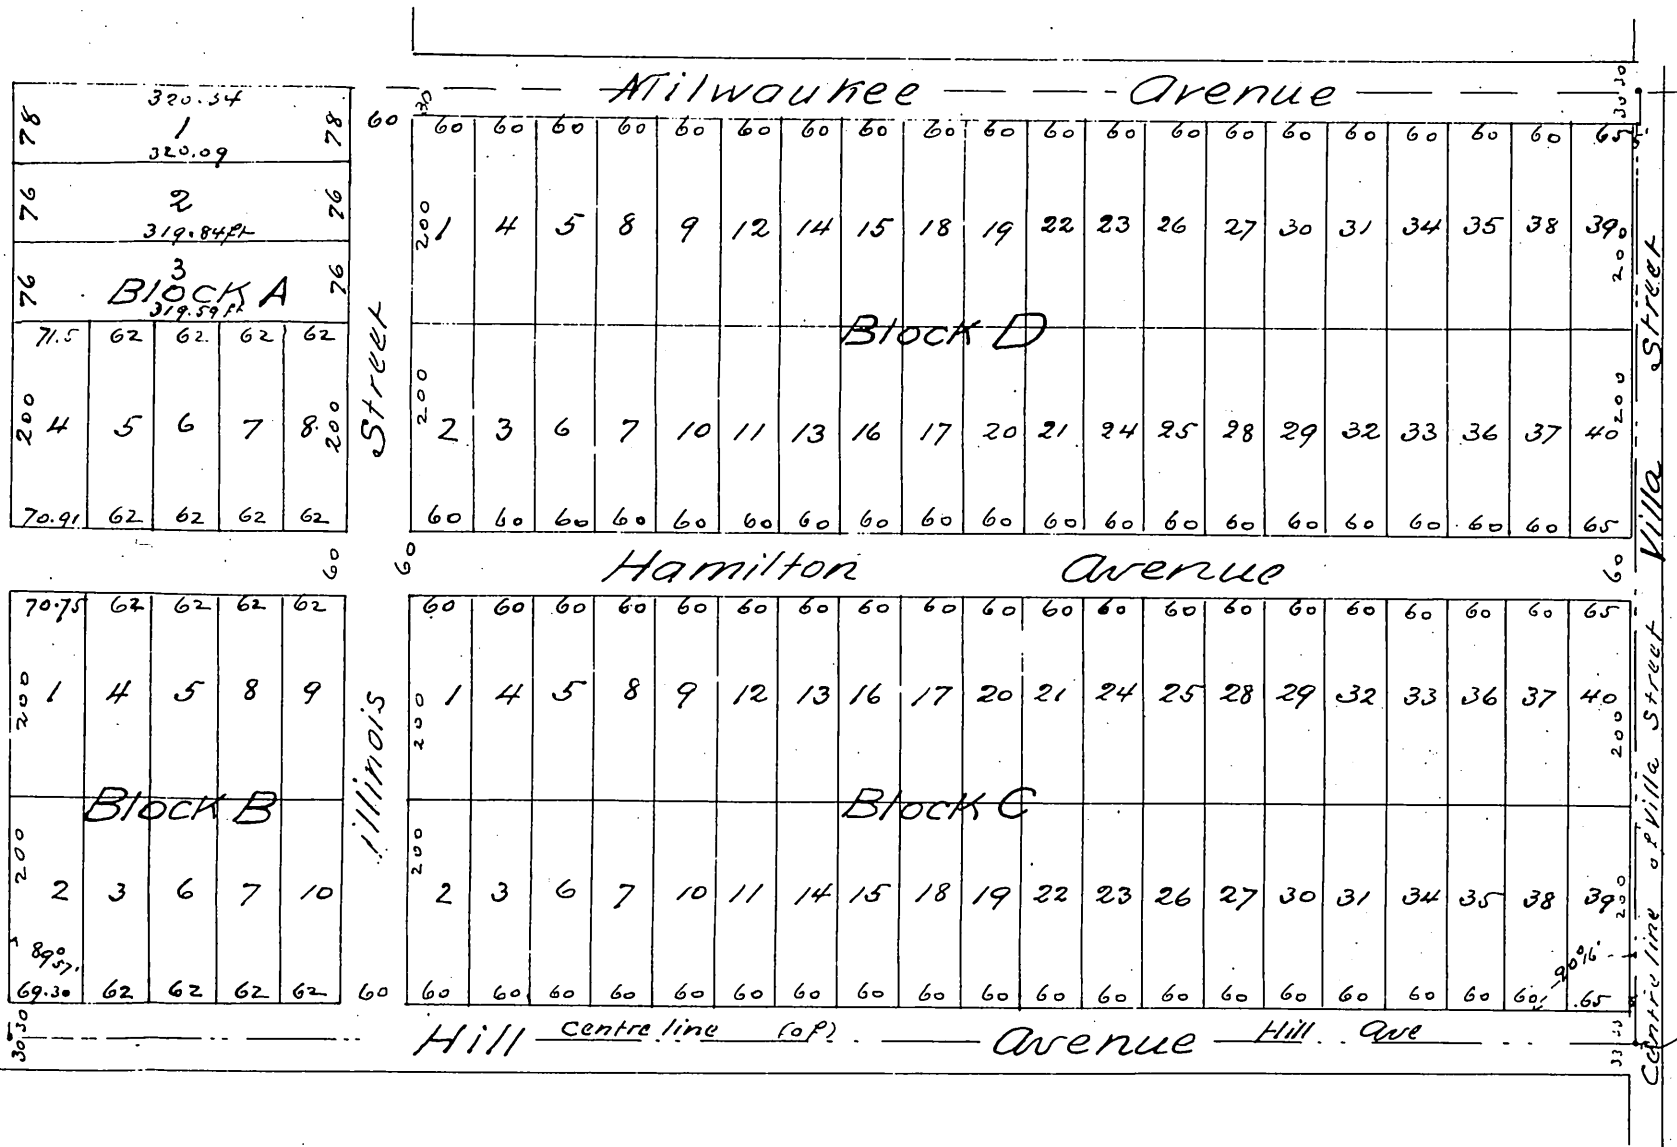 Milwaukee Avenue
30 30
320.34
78 1 78
320.09
76 2 76
319.84 ft
76 3 76
Block A
319.59 ft
71.5 62 62. 62 62
200 4 5 6 7 8. 200
70.91 62 62 62 62
60
30
60 60 60 60 60 60 60 60 60 60 60 60 60 60 60 60 60 60 60 65
200 1 4 5 8 9 12 14 15 18 19 22 23 26 27 30 31 34 35 38 39 200
Block D
200 2 3 6 7 10 11 13 16 17 20 21 24 25 28 29 32 33 36 37 40 200
60 60 60 60 60 60 60 60 60 60 60 60 60 60 60 60 60 60 60 65
60 60 Hamilton Avenue 60
70.75 62 62 62 62
200 1 4 5 8 9
Block B
200 2 3 6 7 10
89° 57'
69.30 62 62 62 62
60
60 60 60 60 60 60 60 60 60 60 60 60 60 60 60 60 60 60 60 65
200 1 4 5 8 9 12 13 16 17 20 21 24 25 28 29 32 33 36 37 40 200
Block C
200 2 3 6 7 10 11 14 15 18 19 22 23 26 27 30 31 34 35 38 39 200
90° 16'
60 60 60 60 60 60 60 60 60 60 60 60 60 60 60 60 60 60 60 .65
30 30
Hill Avenue
Centre line (of) Hill Ave
33 33
Illinois Street
Villa Street
Centre line of Villa Street